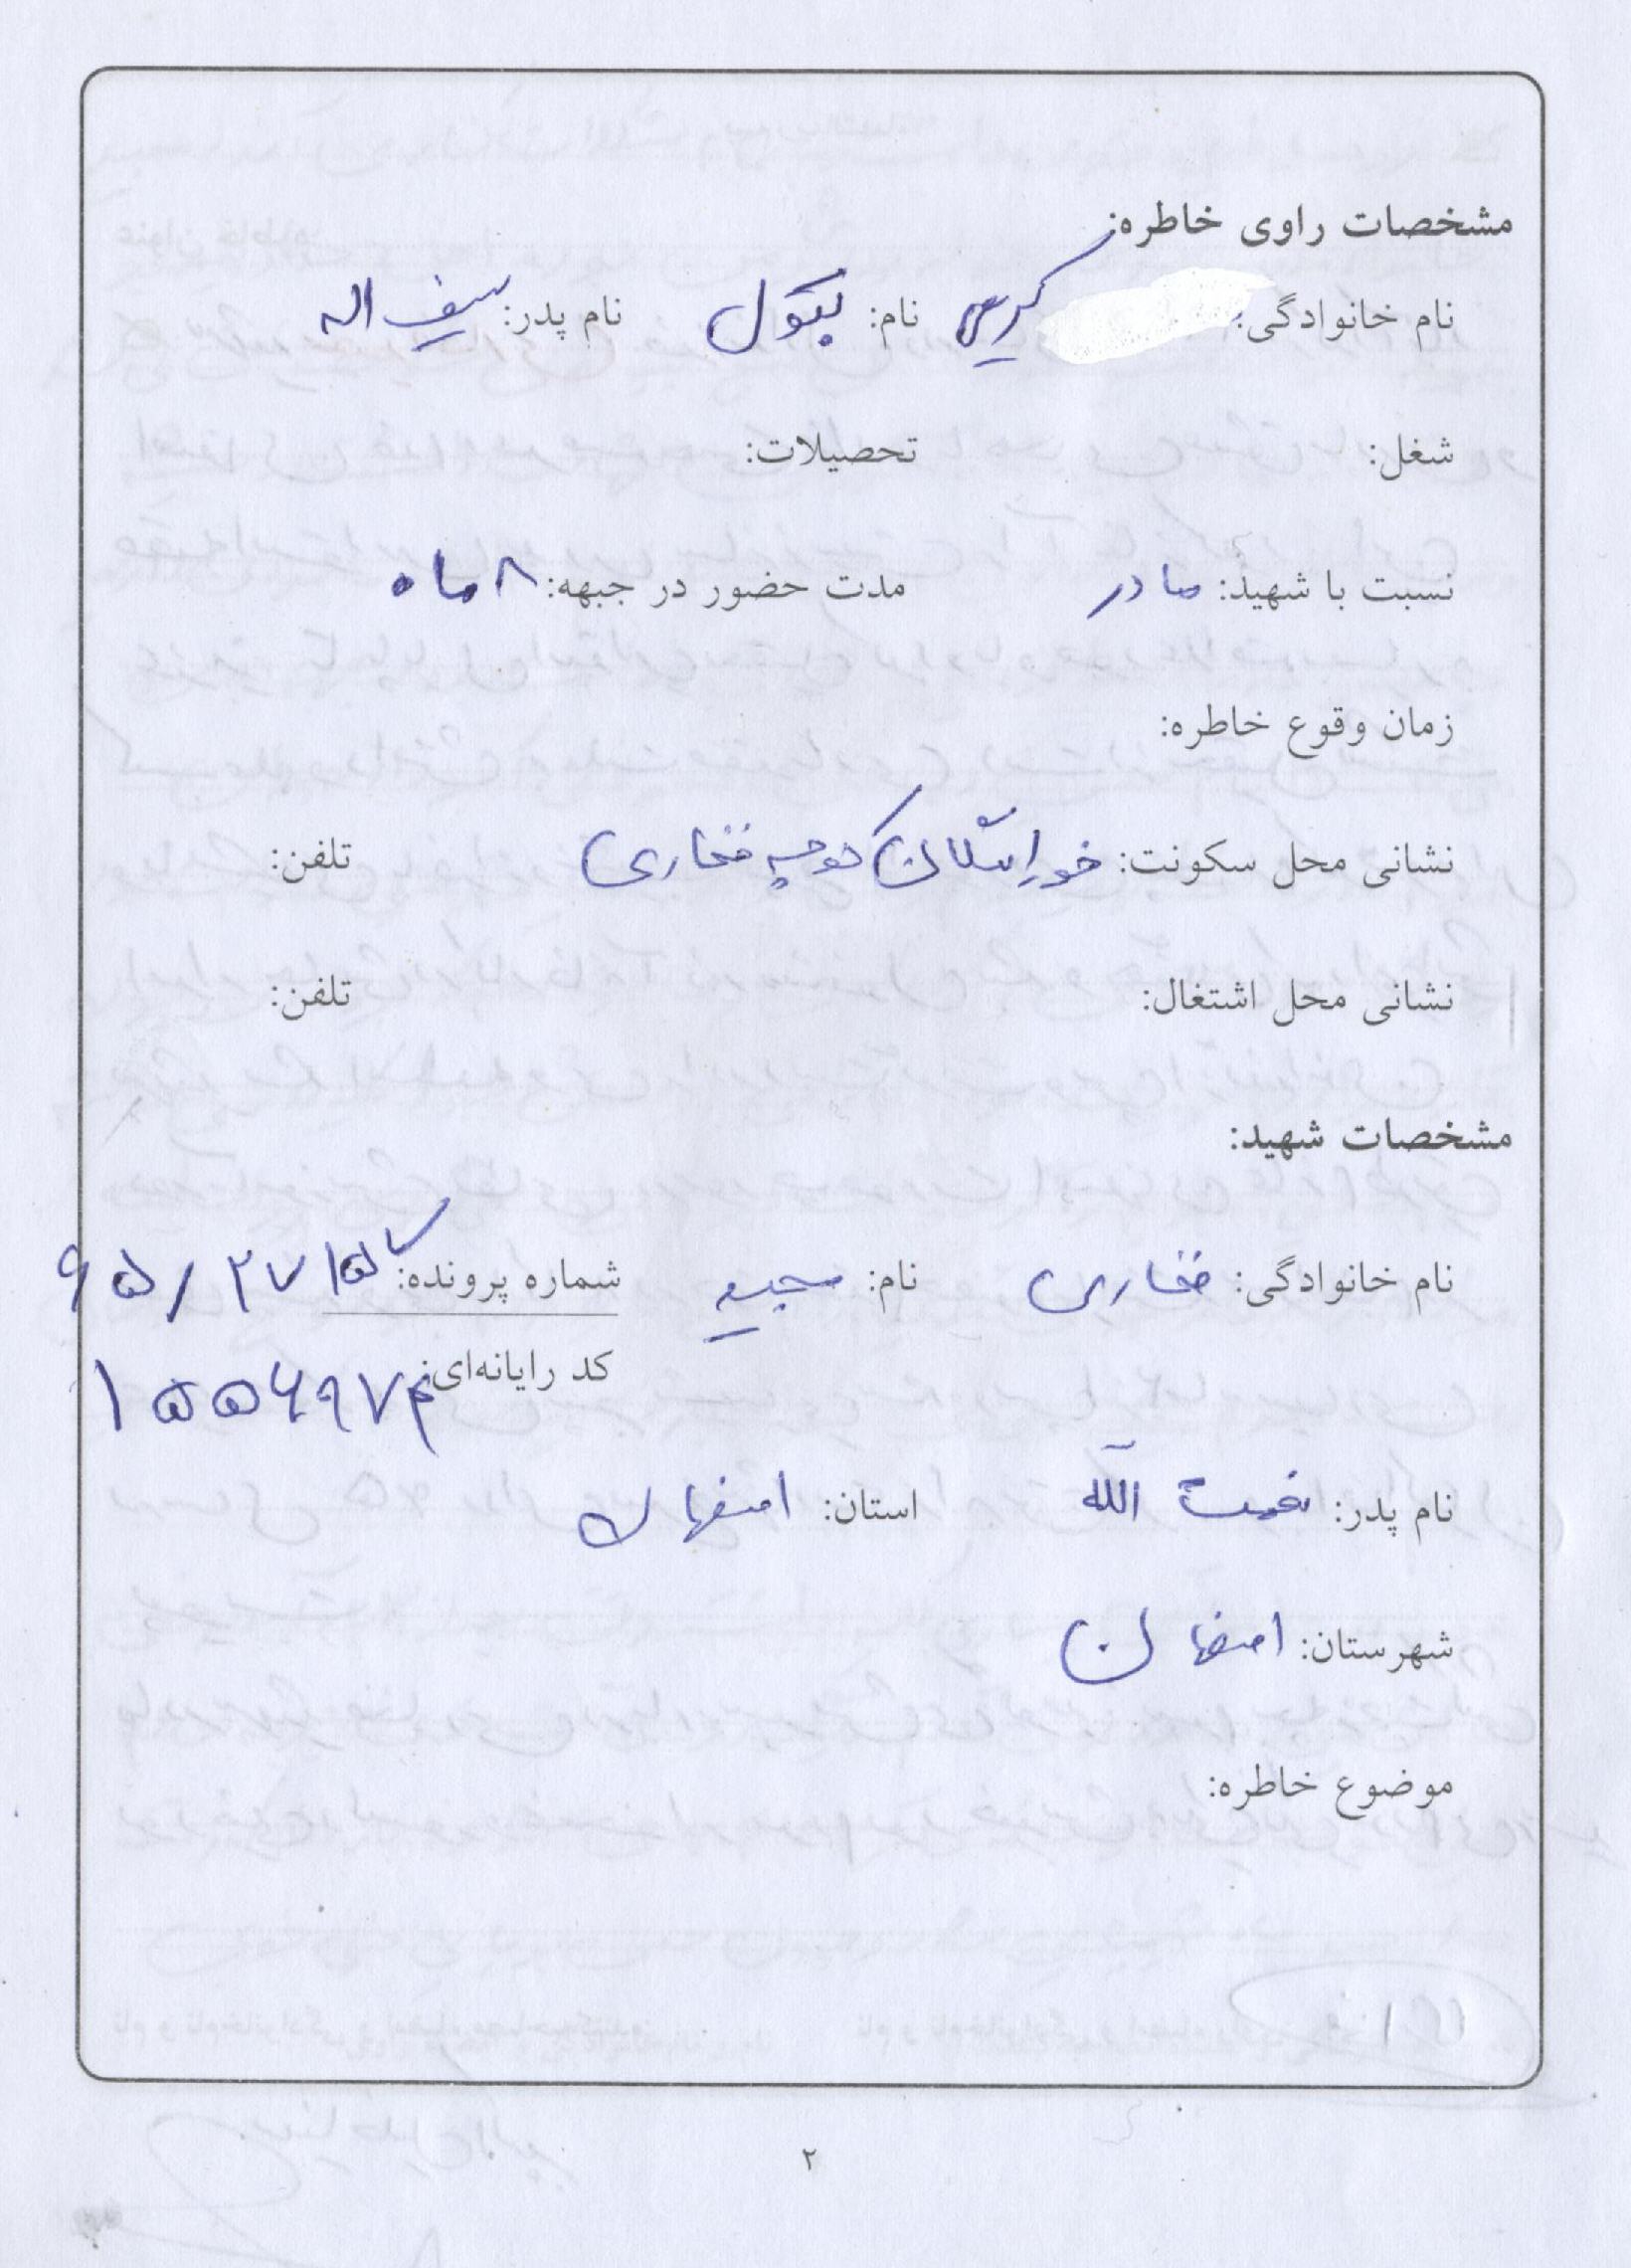 مشخصات راوی خاطره:
نام خانوادگی: کریمی نام: بتول نام پدر: سیف اله
شغل: تحصیلات:
نسبت با شهید: مادر مدت حضور در جبهه: ۸ ماه
زمان وقوع خاطره:
نشانی محل سکونت: خوراسگان کوچه فخاری تلفن:
نشانی محل اشتغال: تلفن:
مشخصات شهید:
نام خانوادگی: فخاری نام: مجید شماره پرونده:
کد رایانه‌ای:
نام پدر: نعمت الله استان: اصفهان
شهرستان: اصفهان
موضوع خاطره:
۲